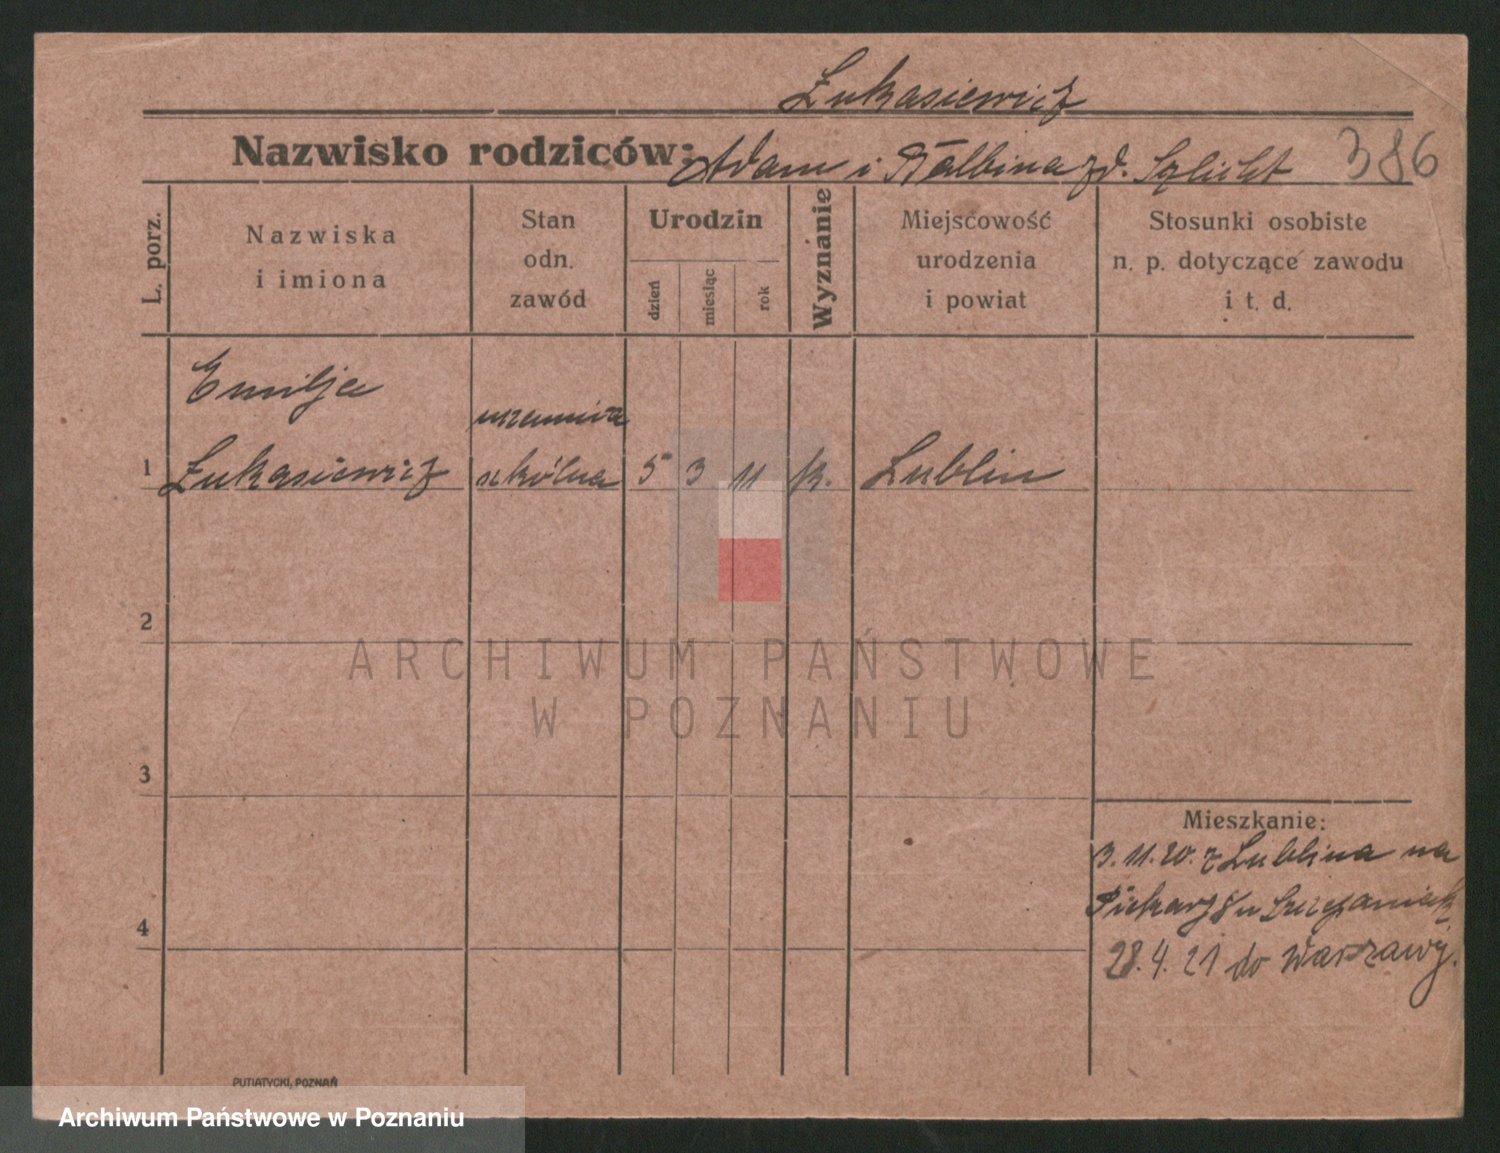 Łukasiewicz
Nazwisko rodziców: Adam i Balbina zd. Szlicht 386
L. porz.
Nazwiska
i imiona
Stan
odn.
zawód
Urodzin
dzień
miesiąc
rok
Wyznanie
Miejscowość
urodzenia
i powiat
Stosunki osobiste
n. p. dotyczące zawodu
i t. d.
Emilja uczennica
1 Łukasiewicz szkólna 5 3 11 k. Lublin
2
ARCHIWUM PAŃSTWOWE
W POZNANIU
3
Mieszkanie:
3.11.20. z Lublina na
Piekary 8 u Szczepaniak
4
28.4.21 do Warszawy.
PUTIATYCKI, POZNAŃ
Archiwum Państwowe w Poznaniu